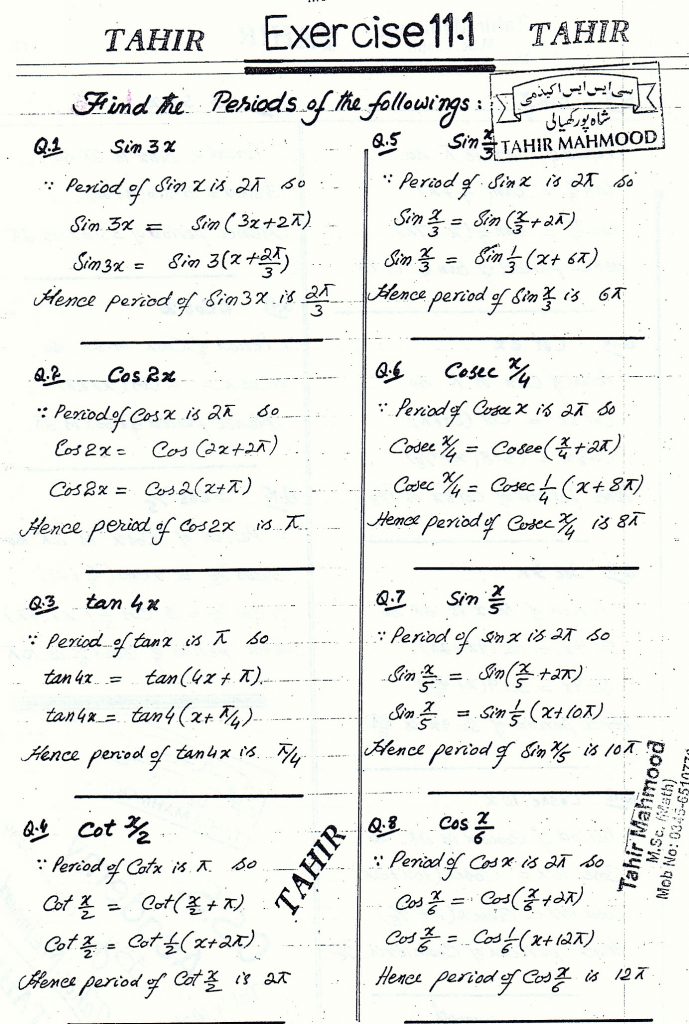 TAHIR Exercise 11.1 TAHIR
Find the Periods of the followings:
سی ایس ایس اکیڈمی
شاہ پور کھیالی
TAHIR MAHMOOD
Q.1 Sin 3x
∵ Period of Sin x is 2π so
Sin 3x = Sin (3x+2π)
Sin3x = Sin 3(x+2π/3)
Hence period of Sin3x is 2π/3
Q.2 Cos 2x
∵ Period of Cos x is 2π so
Cos 2x = Cos (2x+2π)
Cos2x = Cos2(x+π)
Hence period of Cos2x is π
Q.3 tan 4x
∵ Period of tanx is π so
tan4x = tan(4x+π)
tan4x = tan4(x+π/4)
Hence period of tan4x is π/4
Q.4 Cot x/2
∵ Period of Cotx is π so
Cot x/2 = Cot(x/2+π)
Cot x/2 = Cot 1/2(x+2π)
Hence period of Cot x/2 is 2π
TAHIR
Q.5 Sin x/3
∵ Period of Sinx is 2π so
Sin x/3 = Sin(x/3+2π)
Sin x/3 = Sin 1/3(x+6π)
Hence period of Sin x/3 is 6π
Q.6 Cosec x/4
∵ Period of Cosec x is 2π so
Cosec x/4 = Cosec(x/4+2π)
Cosec x/4 = Cosec 1/4(x+8π)
Hence period of Cosec x/4 is 8π
Q.7 Sin x/5
∵ Period of sinx is 2π so
Sin x/5 = Sin(x/5+2π)
Sin x/5 = Sin 1/5(x+10π)
Hence period of Sin x/5 is 10π
Q.8 Cos x/6
∵ Period of Cosx is 2π so
Cos x/6 = Cos(x/6+2π)
Cos x/6 = Cos 1/6(x+12π)
Hence period of Cos x/6 is 12π
Tahir Mahmood
M.Sc. (Math)
Mob No: